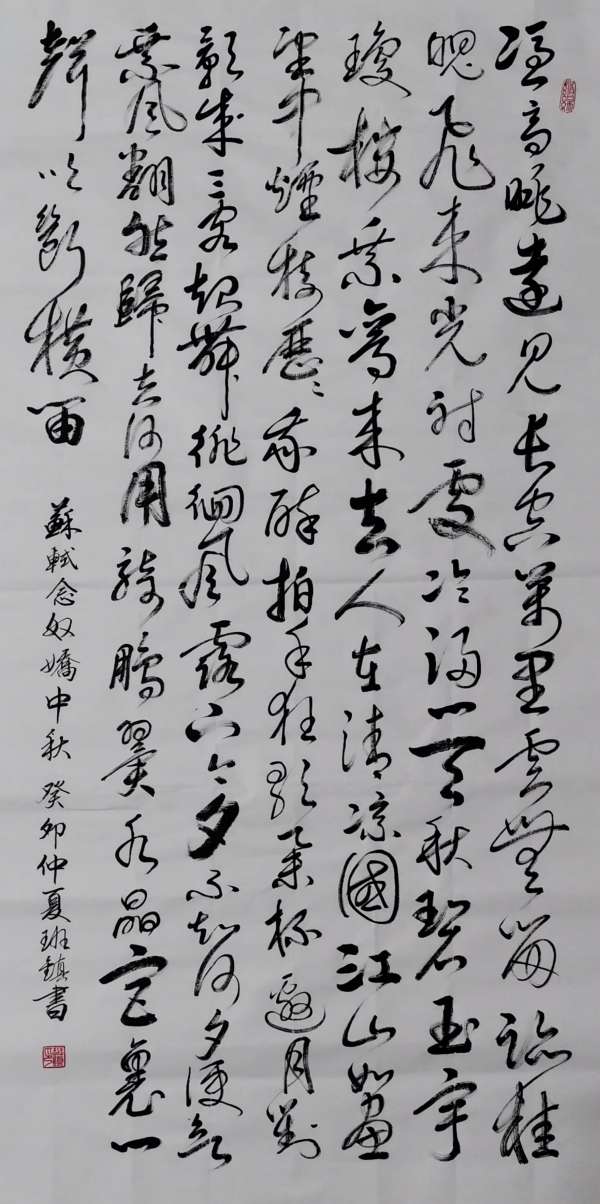 憑高眺遠見長空萬里雲無留跡桂
魄飛來光射處冷浸一天秋碧玉宇
瓊樓乘鸞來去人在清涼國江山如畫
望中煙樹歷〻我醉拍手狂歌舉杯邀月對
影成三客起舞徘徊風露下今夕不知何夕便欲
乘風翻然歸去何用騎鵬翼水晶宮裏一
聲吹斷橫笛
蘇軾念奴嬌中秋 癸卯仲夏班鎮書